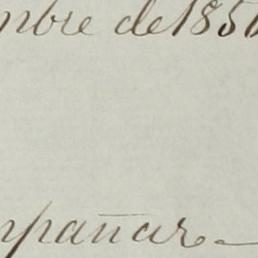 mbre de 185
mpañar